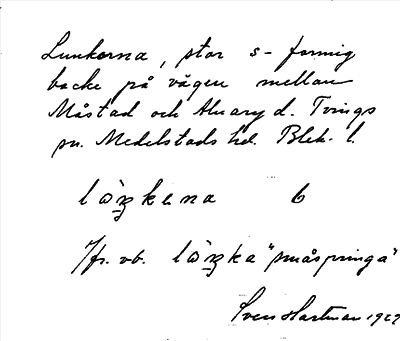 Lunkorna, stor s-formig
backe på vägen mellan
Måstad och Alnaryd. Tvings
sn. Medelstads hd. Blek. l.
lɷ̀ŋkena 6
Jfr. vb. lɷ̀ŋka "småspringa"
Sven Hartman 1927